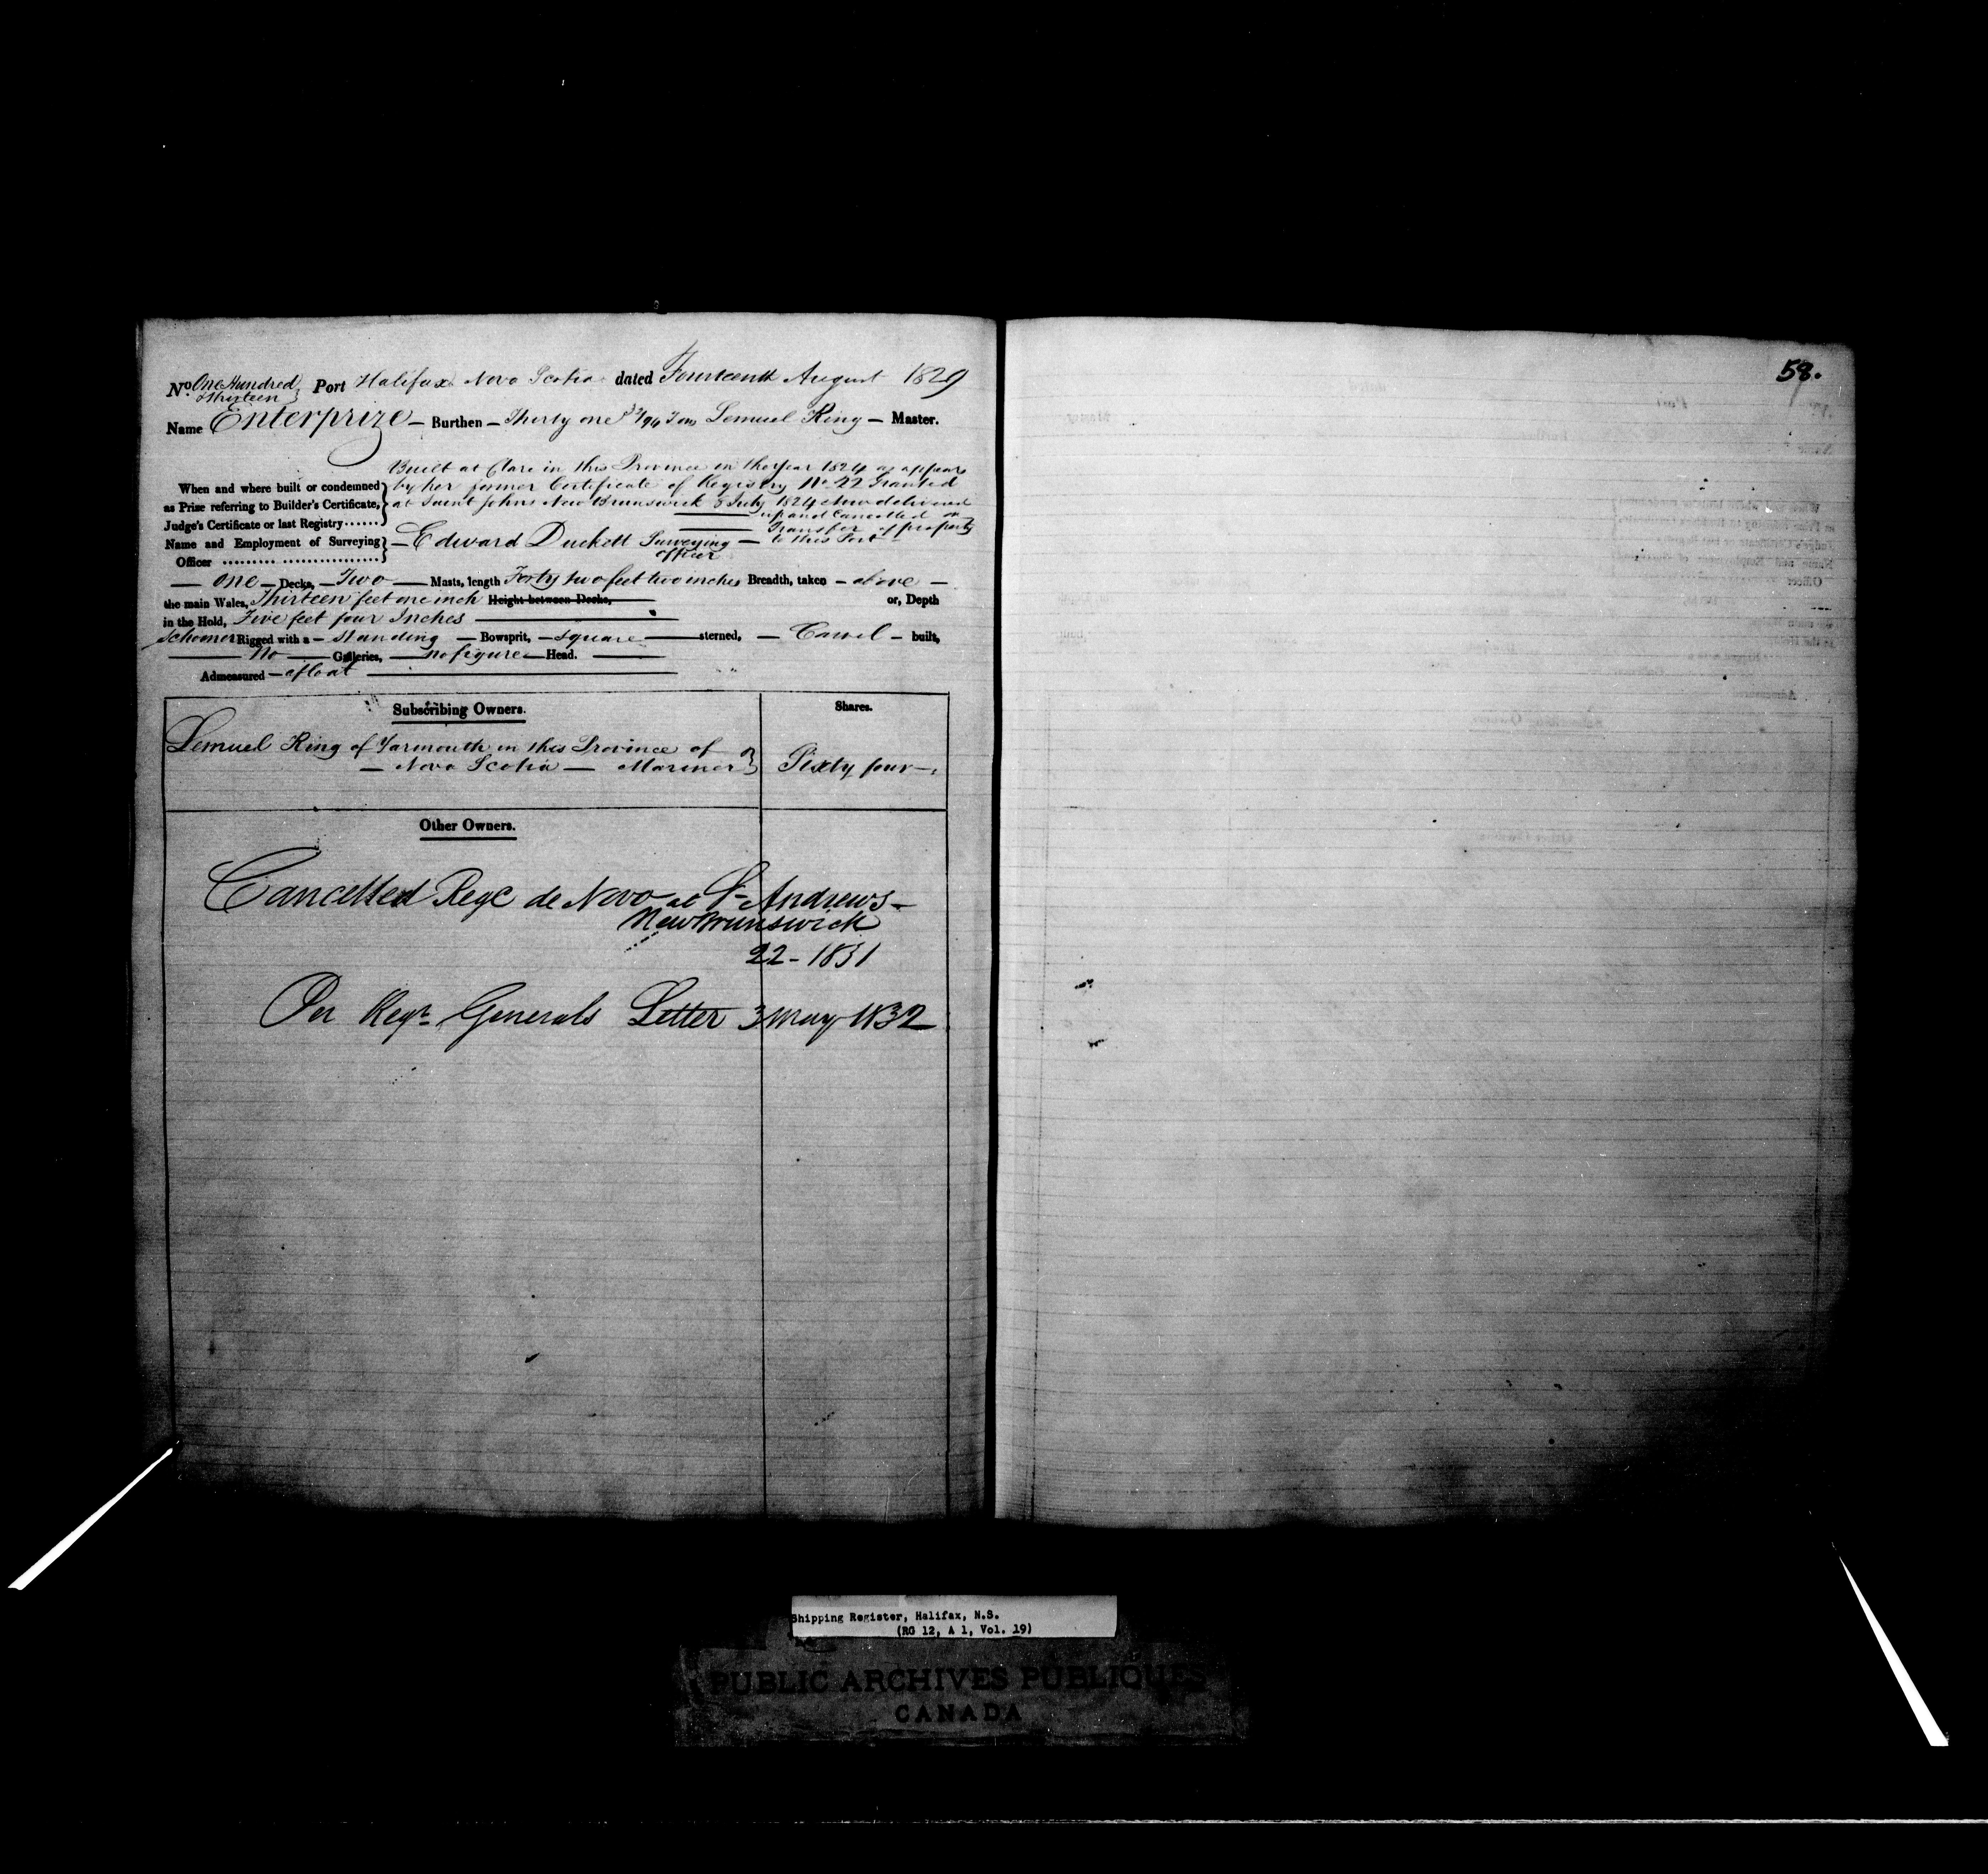 No. One Hundred Thirteen } Port Halifax Nova Scotia dated Fourteenth August 1829
Name Enterprize — Burthen — Thirty one 32/94 Tons Lemuel King — Master.
Built at Clare in this Province in the year 1824 as appears
When and where built or condemned } by her former Certificate of Registry No 22 Granted
as Prize referring to Builder's Certificate, } at Saint Johns New Brunswick 8 July 1824 now delivered
Judge's Certificate or last Registry...... } up and Cancelled on
Transfer of property
Name and Employment of Surveying } — Edward Duckett Surveying — to this Port —
Officer .................... } officer
— one — Decks, — Two — Masts, length Forty two feet two inches Breadth, taken — above —
the main Wales, Thirteen feet one inch Height between Decks, or, Depth
in the Hold, Five feet four Inches
Schooner Rigged with a — standing — Bowsprit, — square — sterned, — Carvel — built,
— No — Galleries, — no figure — Head.
Admeasured — afloat
Subscribing Owners. Shares.
Lemuel King of Yarmouth in this Province of }
— Nova Scotia — Mariner } Sixty four —
Other Owners.
Cancelled Rege de Novo at St Andrews —
New Brunswick
22 - 1831
Per Regr Generals Letter 3 May 1832
58.
Shipping Register, Halifax, N.S.
(RG 12, A 1, Vol. 19)
PUBLIC ARCHIVES PUBLIQUES
CANADA